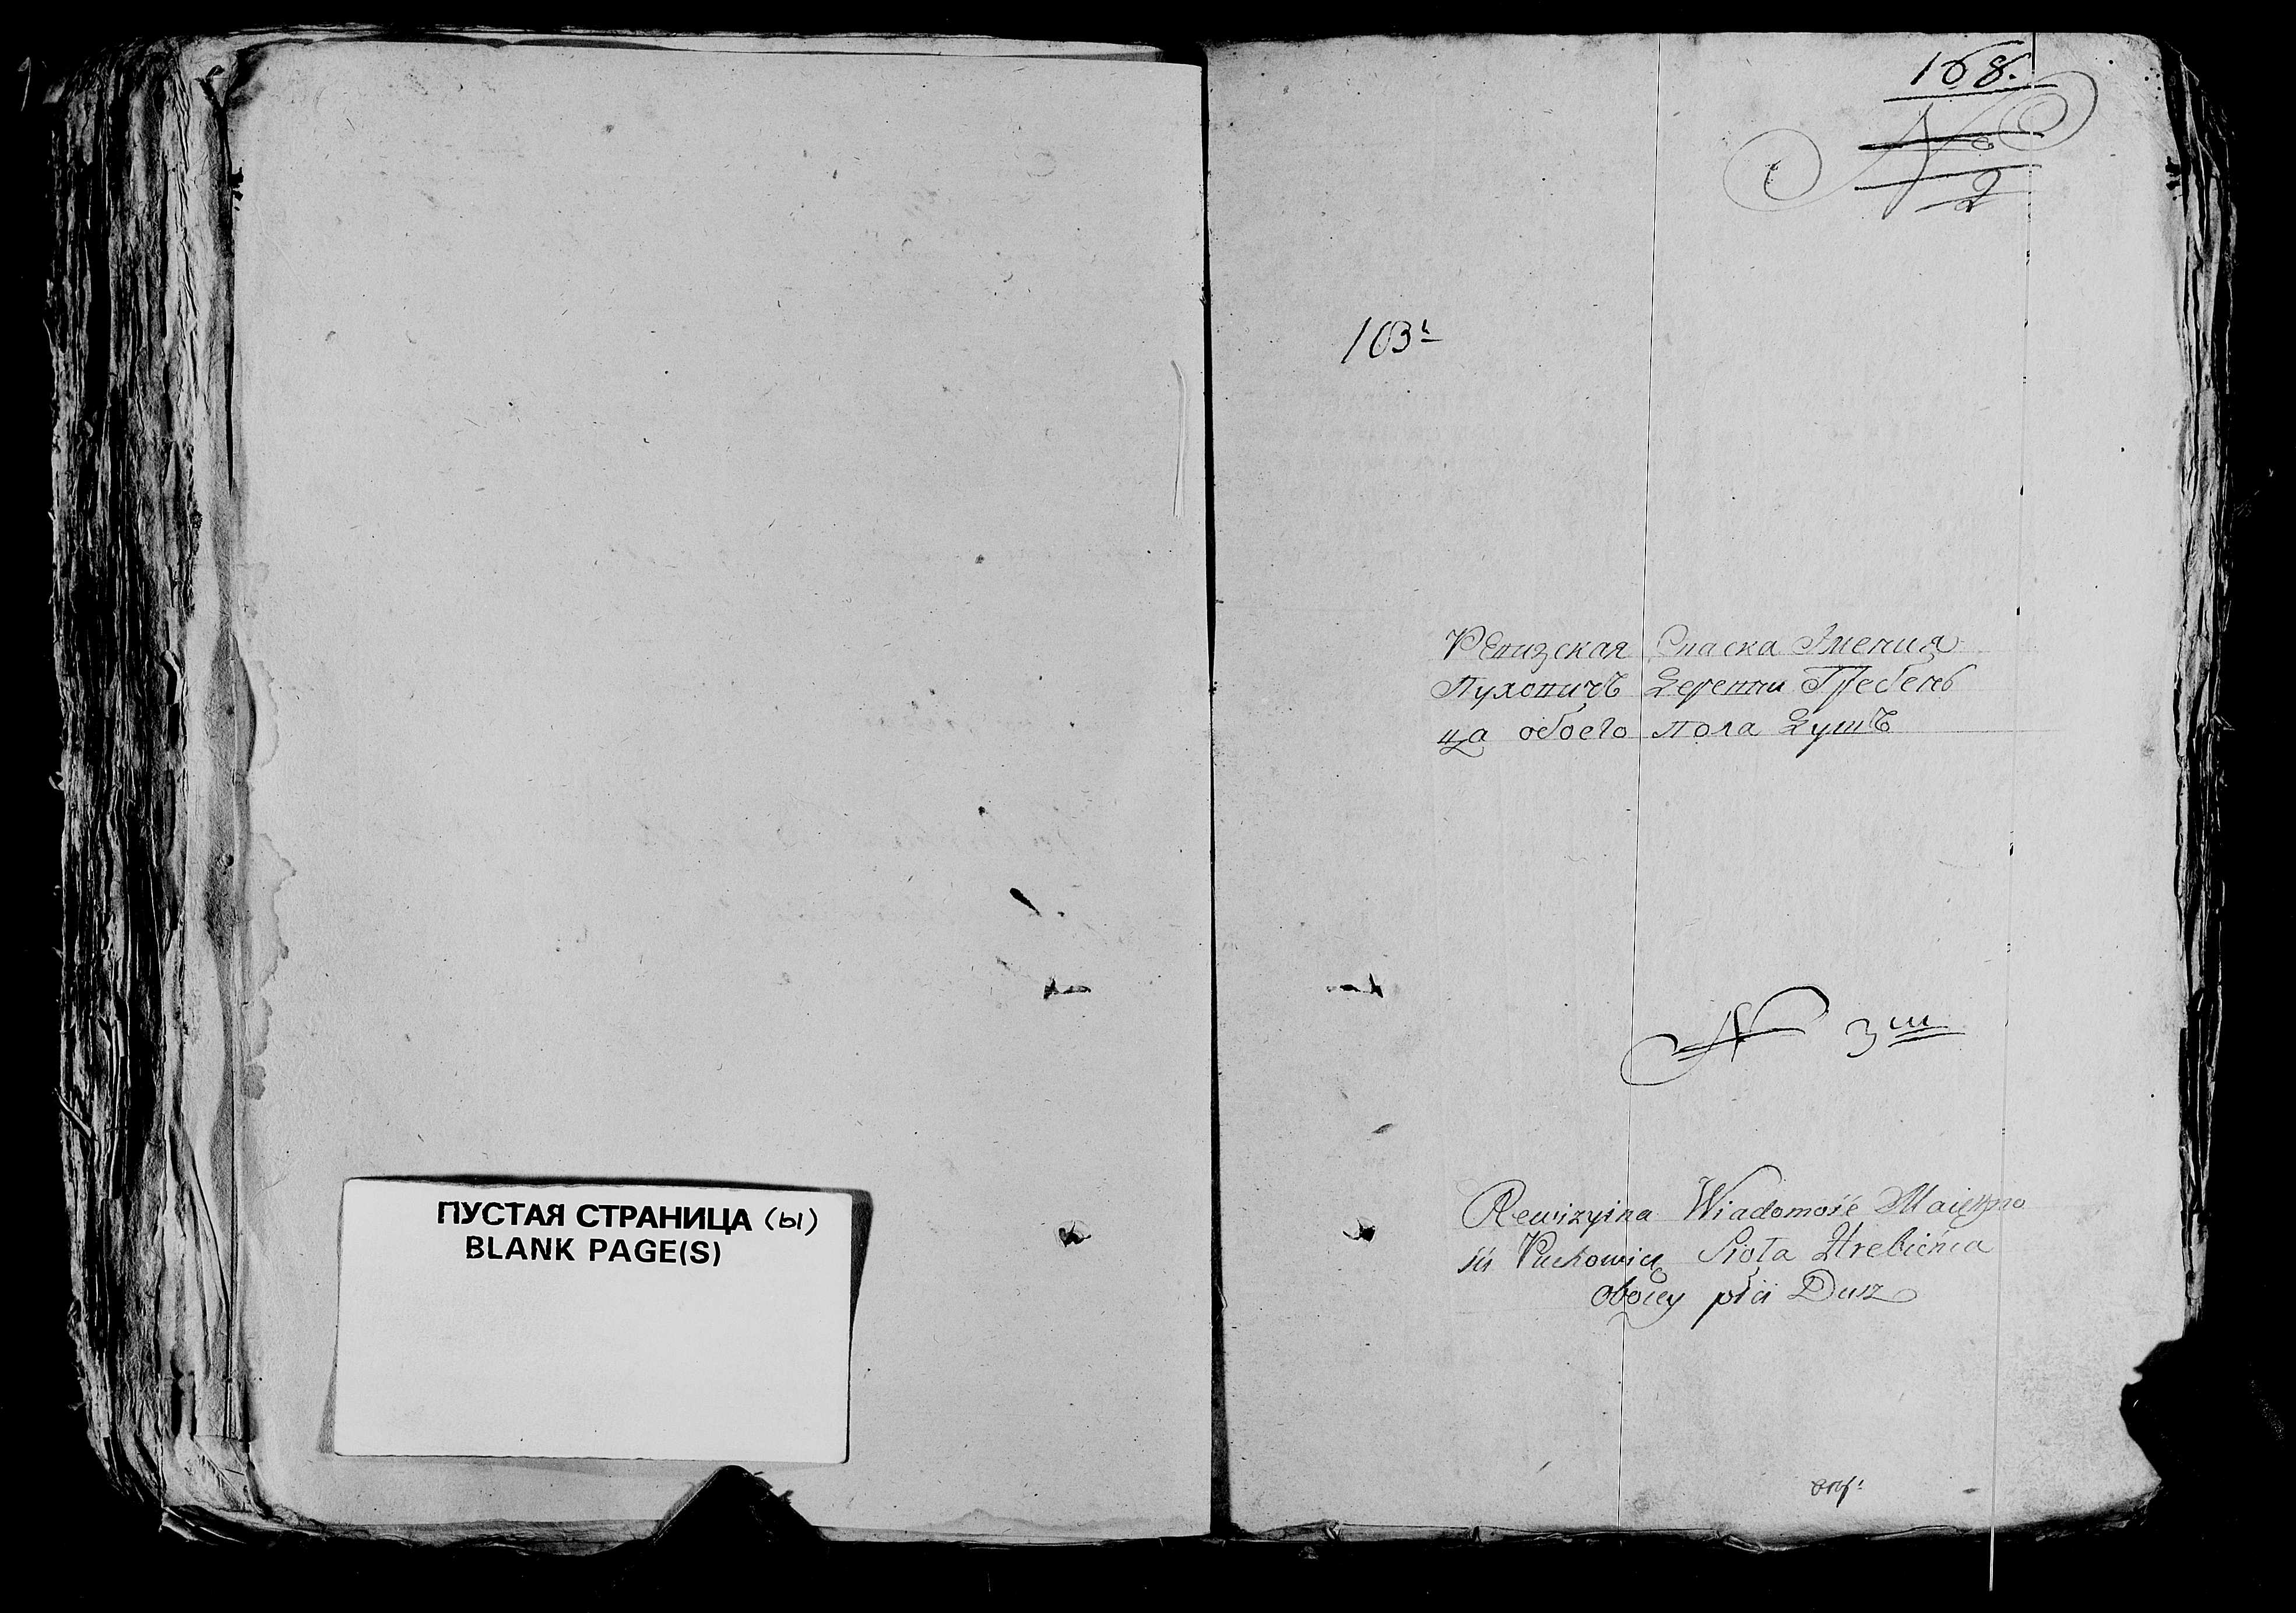 ПУСТАЯ СТРАНИЦА (ы)
BLANK PAGE(S)
168.
№
2
103
Ревизская Спаска Имения
Пуховичъ Деревни Гребень
ца обоего пола Душъ
№ 3
Rewizyina Wiadomość Maiętno
ści Puchowicz Sioła Hrebieńca
oboiey płci Dusz